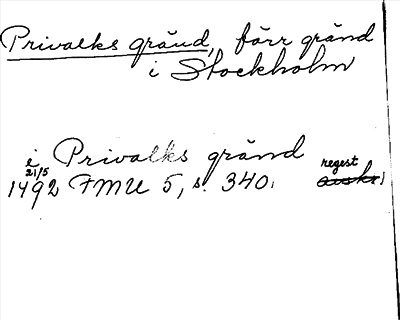 Privalks gränd, förr gränd
i Stockholm
i Privalks gränd
21/5 regest
1492 FMU 5, s. 340. avskr.